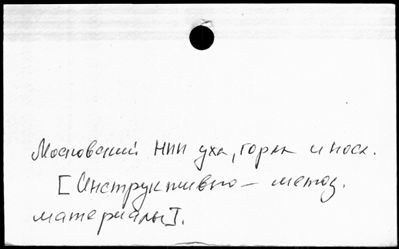 Московский НИИ уха, горла и носа.
[Инструктивно – метод.
материалы].